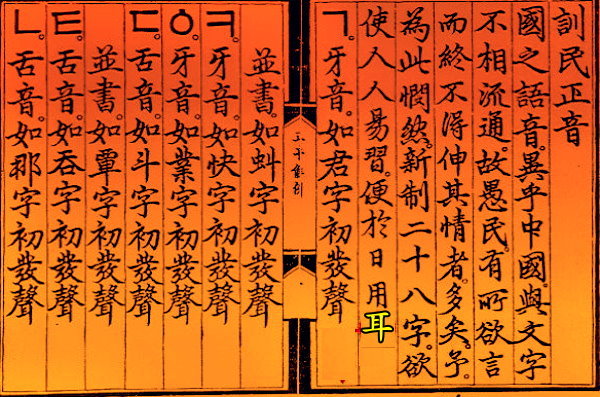 訓民正音
國之語音。異乎中國。與文字
不相流通。故愚民。有所欲言
而終不得伸其情者。多矣。予。
為此憫然。新制二十八字。欲
使人人易習。便於日用耳
ㄱ。牙音。如君字初發聲
並書。如虯字初發聲
ㅋ。牙音。如快字初發聲
ㆁ。牙音。如業字初發聲
ㄷ。舌音。如斗字初發聲
並書。如覃字初發聲
ㅌ。舌音。如呑字初發聲
ㄴ。舌音。如那字初發聲